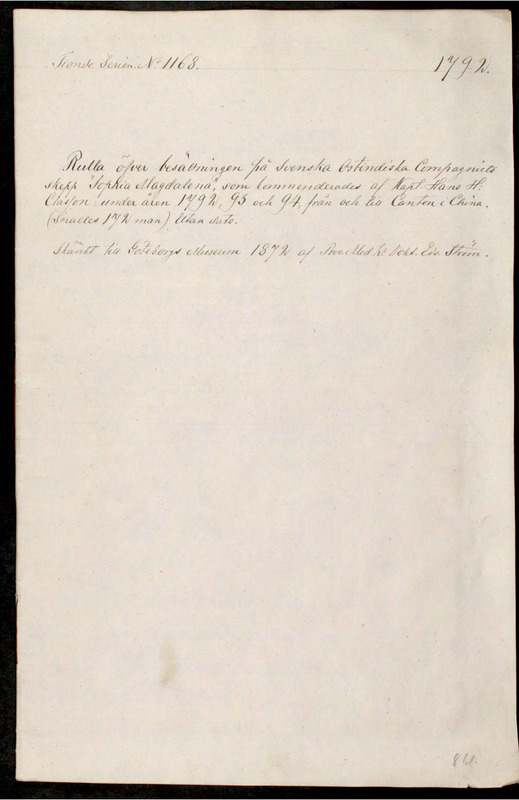 Trende Serien. No 1168.
1792.
Rulla öfver besättningen på Svenska Ostindiska Compagniets
skepp "Sophia Magdalena", som kommenderades af Kapt. Hans H.
Clason, under åren 1792, 93 och 94 från och till Canton i China.
(Inalles 172 man). Utan dato.
Skänkt till Göteborgs Museum 1872 af Prov. Med. Dokt. Edv. Ström.